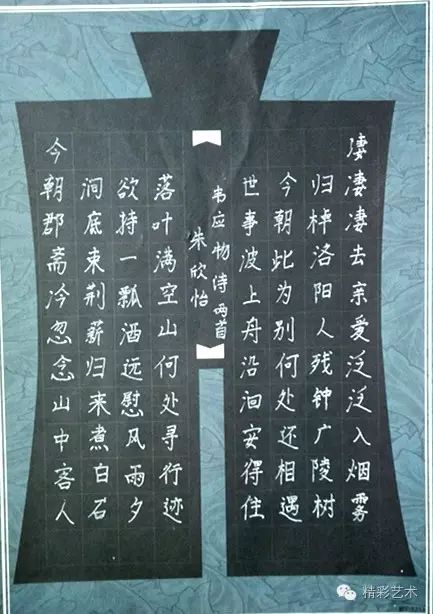 凄凄凄去亲爱泛泛入烟雾
归棹洛阳人残钟广陵树
今朝此为别何处还相遇
世事波上舟沿洄安得住
韦应物诗两首
朱欣怡
落叶满空山何处寻行迹
欲持一瓢酒远慰风雨夕
涧底束荆薪归来煮白石
今朝郡斋冷忽念山中客人
精彩艺术